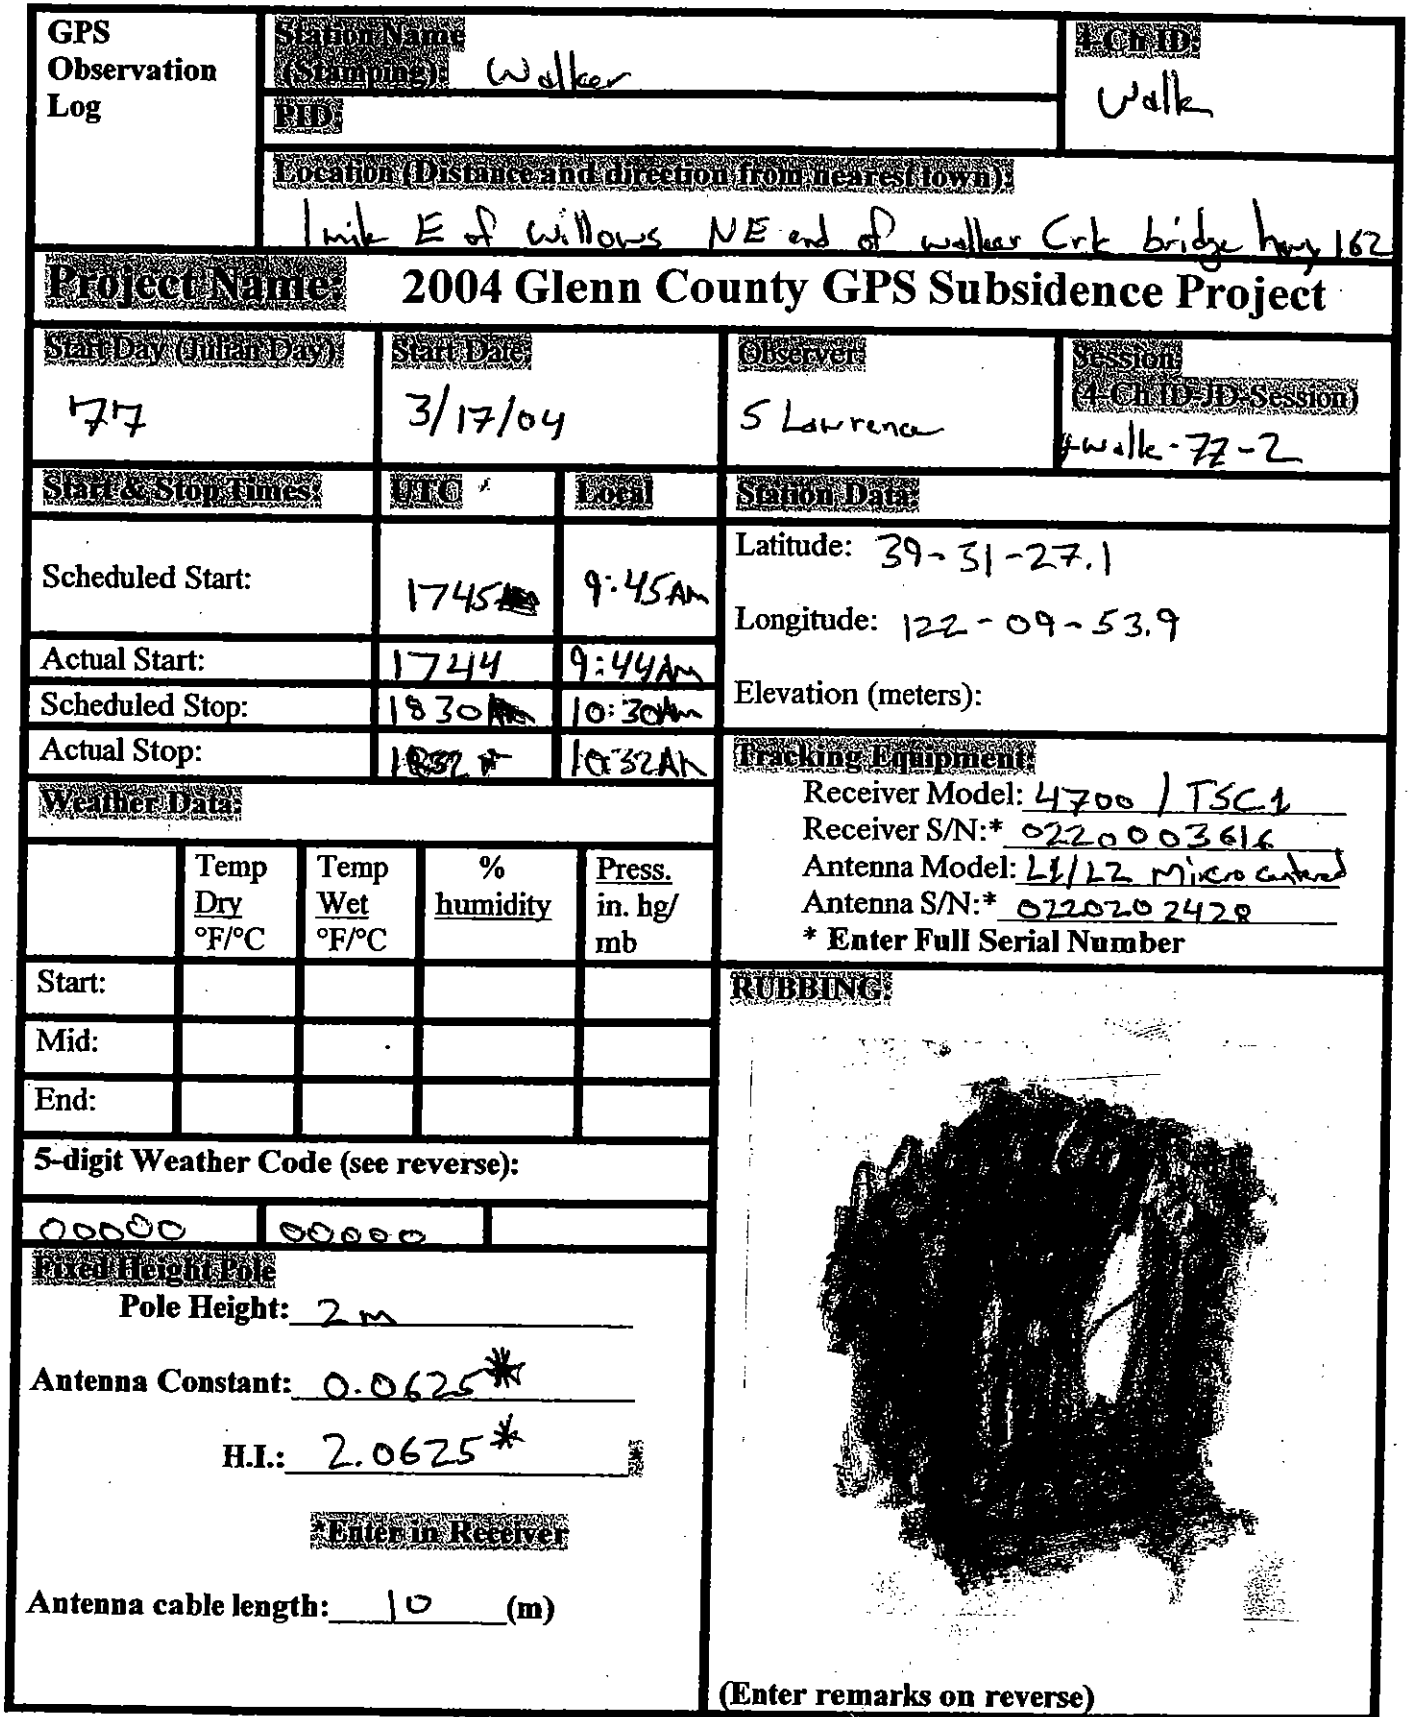 GPS
Observation
Log
Station Name
(Stamping): Walker
4-Ch ID:
Walk
PID:
Location (Distance and direction from nearest town):
1 mile E of Willows NE end of walker Crk bridge hwy 162
Project Name: 2004 Glenn County GPS Subsidence Project
Start Day (Julian Day)
77
Start Date:
3/17/04
Observer:
S Lawrence
Session
(4-Ch ID-JD-Session)
walk-77-2
Start & Stop Times: UTC Local
Scheduled Start: 1745 9:45Am
Actual Start: 1744 9:44Am
Scheduled Stop: 1830 10:30Am
Actual Stop: 1832 10:32AM
Station Data:
Latitude: 39-31-27.1
Longitude: 122-09-53.9
Elevation (meters):
Tracking Equipment:
Receiver Model: 4700 / TSC1
Receiver S/N:* 0220003616
Antenna Model: L1/L2 Micro centered
Antenna S/N:* 0220202428
* Enter Full Serial Number
Weather Data:
Temp Dry °F/°C
Temp Wet °F/°C
% humidity
Press. in. hg/ mb
Start:
Mid:
End:
5-digit Weather Code (see reverse):
00000 00000
Fixed Height Pole
Pole Height: 2m
Antenna Constant: 0.0625*
H.I.: 2.0625* *
*Enter in Receiver
Antenna cable length: 10 (m)
RUBBING:
(Enter remarks on reverse)